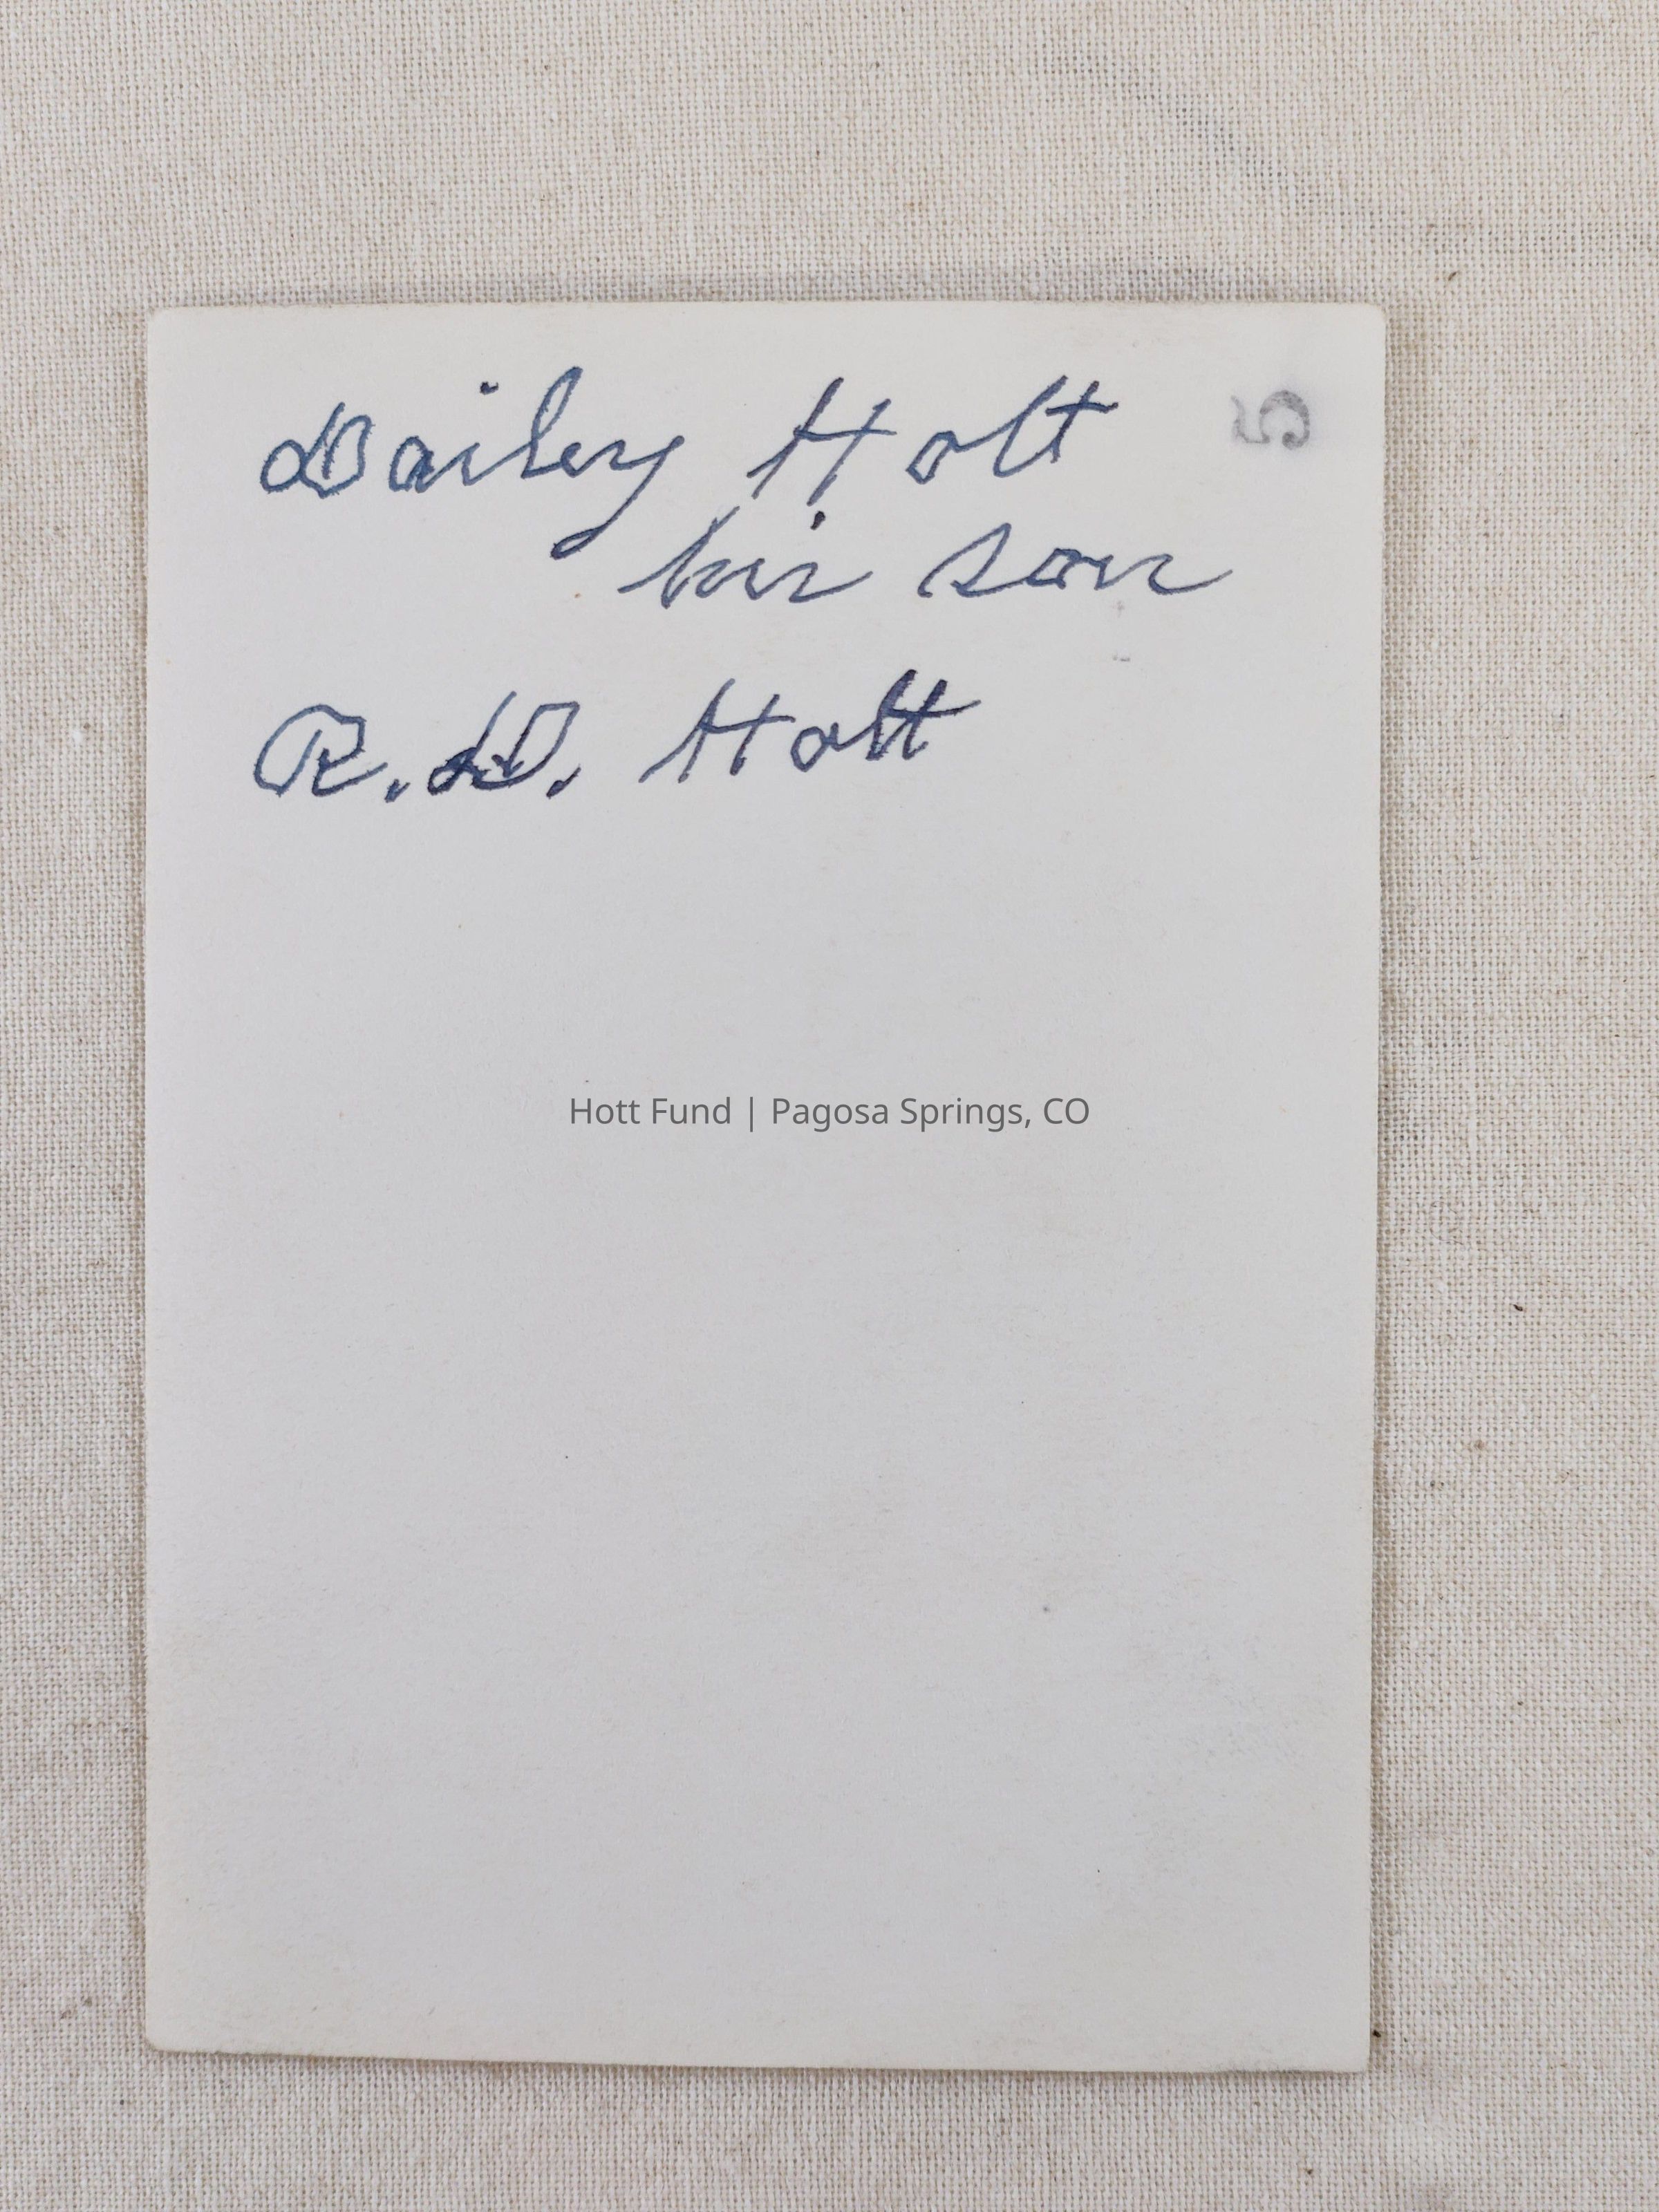 Bailey Holt
his son
R.D. Holt
5
Hott Fund | Pagosa Springs, CO